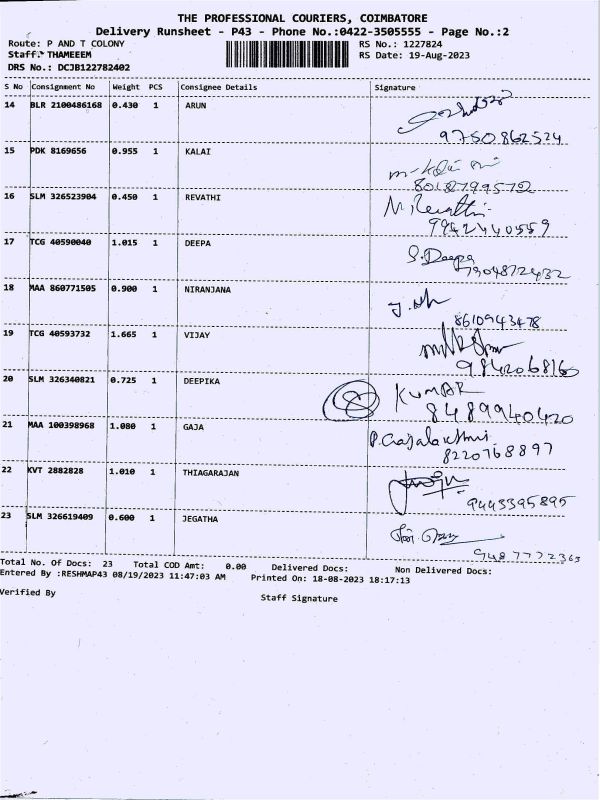 THE PROFESSIONAL COURIERS, COIMBATORE
Delivery Runsheet - P43 - Phone No.:0422-3505555 - Page No.:2
Route: P AND T COLONY RS No.: 1227824
Staff: THAMEEEM RS Date: 19-Aug-2023
DRS No.: DCJB122782402
S No Consignment No Weight PCS Consignee Details Signature
14 BLR 2100486168 0.430 1 ARUN
9750862524
15 PDK 8169656 0.955 1 KALAI
16 SLM 326523904 0.450 1 REVATHI M.Revathi
9942440559
17 TCG 40590040 1.015 1 DEEPA S.Deepa
7904872432
18 MAA 860771505 0.900 1 NIRANJANA
8610943478
19 TCG 40593732 1.665 1 VIJAY
9842068160
20 SLM 326340821 0.725 1 DEEPIKA KUMAR
8489940420
21 MAA 100398968 1.080 1 GAJA P.Gajalakshmi
8220768897
22 KVT 2882828 1.010 1 THIAGARAJAN
9443395895
23 SLM 326619409 0.600 1 JEGATHA
9487772365
Total No. Of Docs: 23 Total COD Amt: 0.00 Delivered Docs: Non Delivered Docs:
Entered By :RESHMAP43 08/19/2023 11:47:03 AM Printed On: 18-08-2023 18:17:13
Verified By Staff Signature